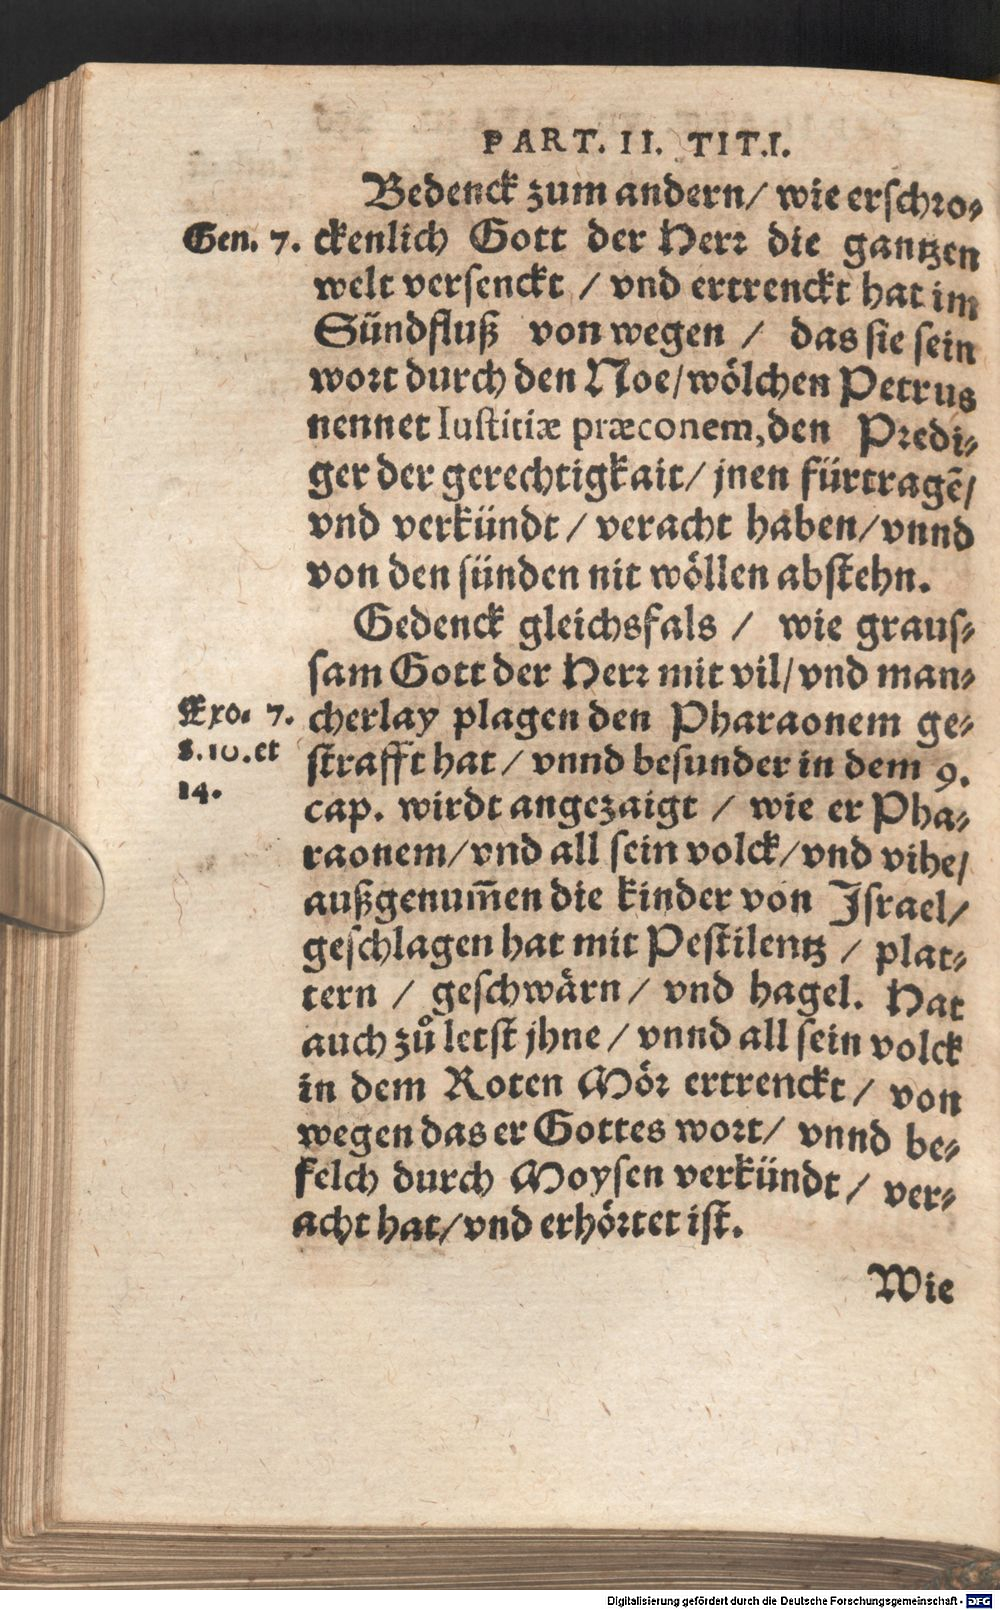 PART. II. TIT.I.
Bedenck zum andern/ wie erschro⸗
Gen. 7. ckenlich Gott der Herr die gantzen
welt versenckt / vnd ertrenckt hat im
Sündfluß von wegen / das sie sein
wort durch den Noe/wölchen Petrus
nennet Iustitiæ præconem,den Predi⸗
ger der gerechtigkait/ jnen fürtragẽ/
vnd verkündt / veracht haben/vnnd
von den sünden nit wöllen abstehn.
Gedenck gleichsfals / wie graus⸗
sam Gott der Herr mit vil/vnd man⸗
Exo. 7. cherlay plagen den Pharaonem ge⸗
8.10.et strafft hat / vnnd besunder in dem 9.
14. cap. wirdt angezaigt / wie er Pha⸗
raonem/vnd all sein volck/vnd vihe/
außgenum̃en die kinder von Israel/
geschlagen hat mit Pestilentz / plat⸗
tern / geschwärn / vnd hagel. Hat
auch zů letst jhne / vnnd all sein volck
in dem Roten Mör ertrenckt / von
wegen das er Gottes wort/ vnnd be⸗
felch durch Moysen verkündt / ver⸗
acht hat/vnd erhörtet ist.
Wie
Digitalisierung gefördert durch die Deutsche Forschungsgemeinschaft - DFG